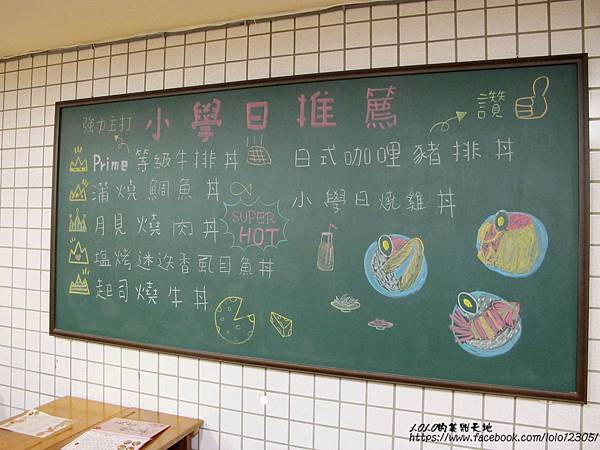 強力主打
小學日推薦
讚
Prime等級牛排丼
蒲燒鯛魚丼
月見燒肉丼
塩烤迷迭香虱目魚丼
起司燒牛丼
SUPER
HOT
日式咖哩豬排丼
小學日燒雞丼
LOLO的美胞天地
https://www.facebook.com/lolo12305/